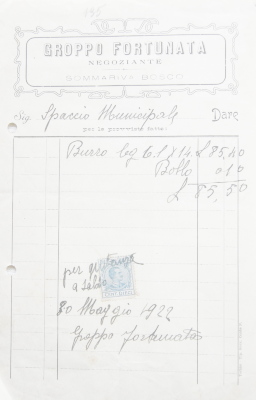 195
GROPPO FORTUNATA
NEGOZIANTE
SOMMARIVA BOSCO
Sig. Spaccio Municipale Dare
per le provviste fatte:
Burro Kg 6.1 X 14 £ 85,40
Bollo 0.10
£ 85,50
per quitanza
a saldo
30 Maggio 1922
Groppo Fortunata